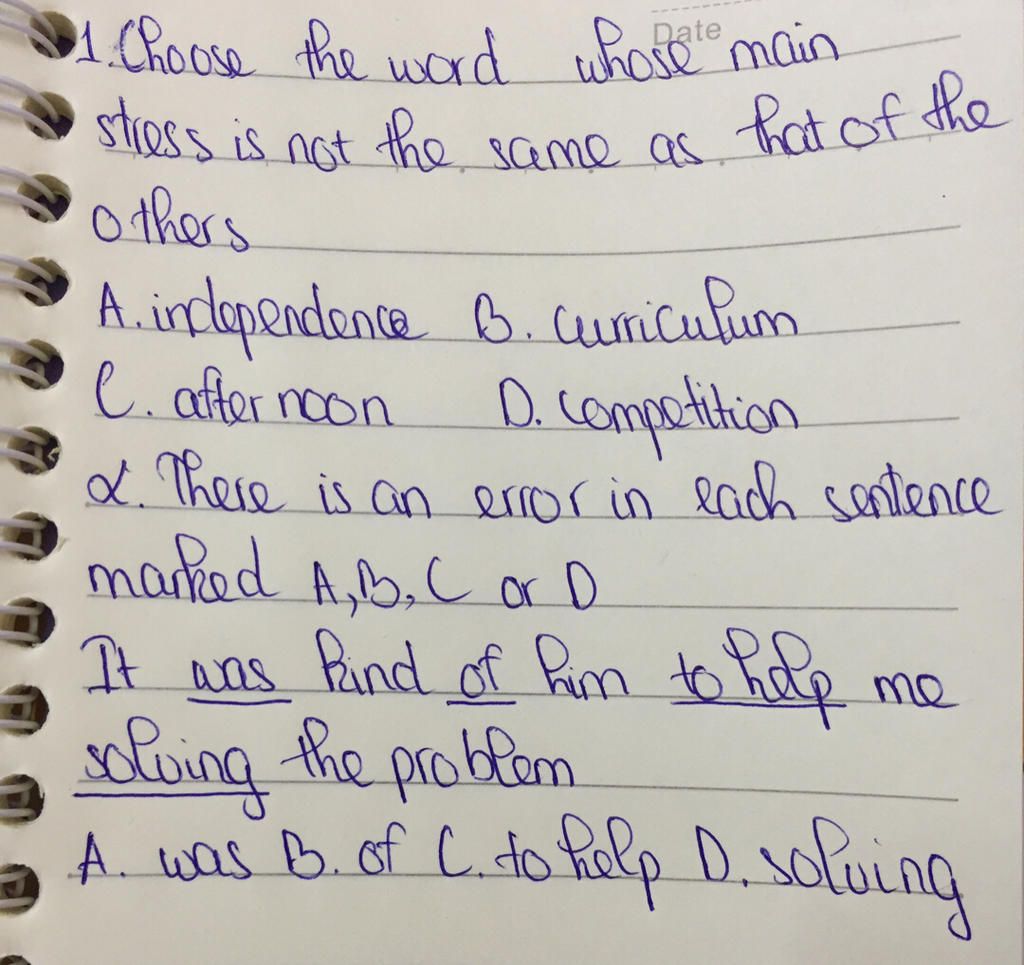 Date
1. Choose the word whose main
stress is not the same as that of the
others
A. independence B. curriculum
C. afternoon D. competition
2. There is an error in each sentence
marked A, B, C or D
It was kind of him to help me
solving the problem
A. was B. of C. to help D. solving